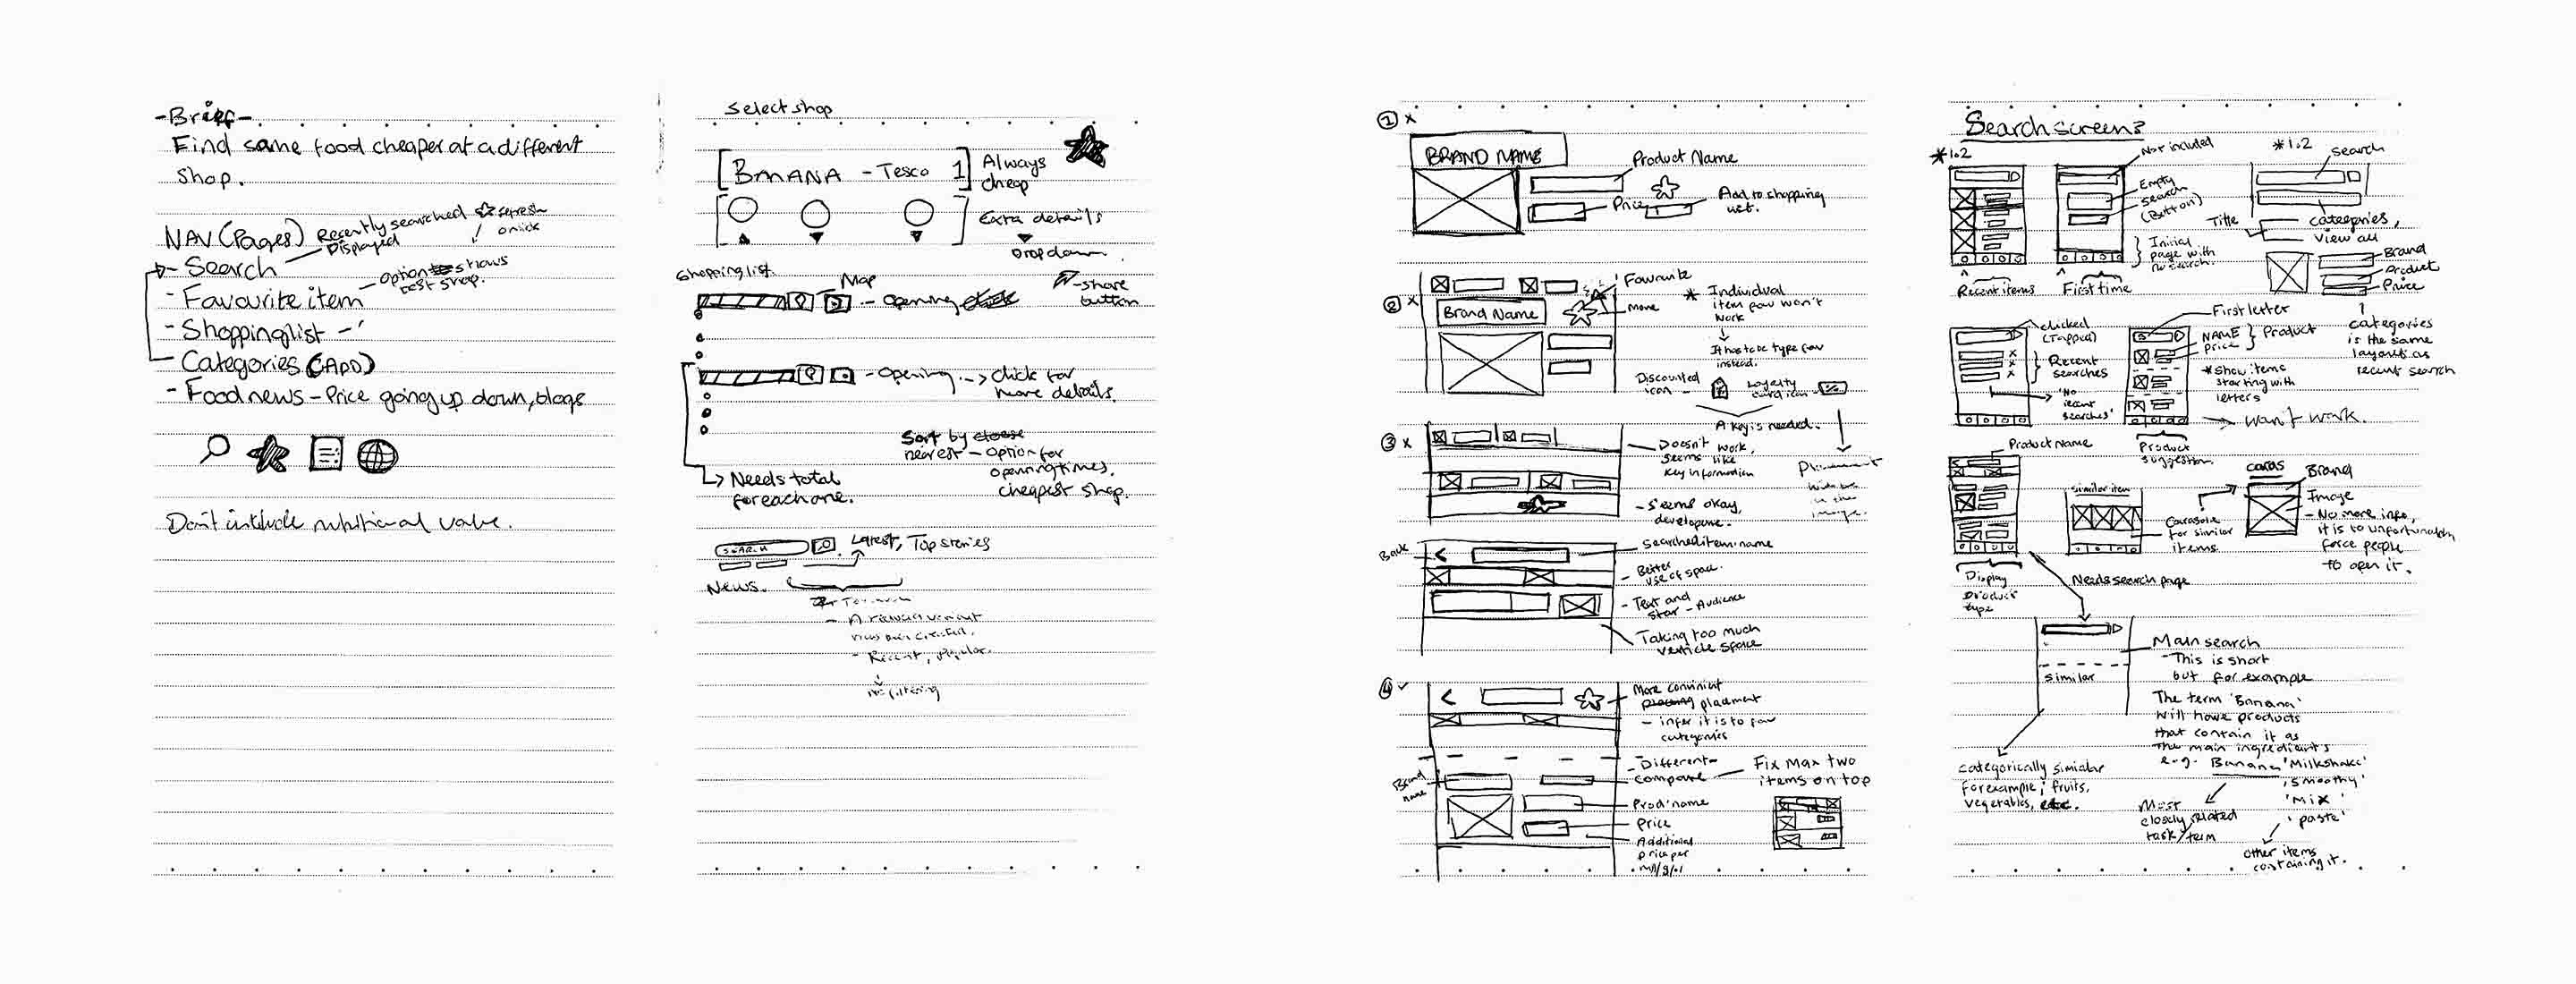 -Brief-
Find same food cheaper at a different
shop.
NAV (Pages)
Recently searched
Displayed
refresh
- Search
- Favourite item
- Option shows
best shop.
- Shopping list -
- Categories (ADD)
- Food news - Price going up down, blogs
Don't include nutritional value.
Select shop
BANANA - Tesco 1
Always
cheap
Extra details
Drop down
Shopping list
Map
- Opening
- share
button
- Opening -> click for
more details.
Sort by close
nearest - Option for
openning times,
cheapest shop.
Needs total
for each one.
SEARCH
Latest, Top stories
News.
- Recent, popular.
No filtering
1 x
BRAND NAME
Product Name
Price
Add to shopping
list.
2 x
Favourite
Brand Name
move
* Individual
item fav won't
work
It has to be type fav
instead.
Discounted
icon
Loyalty
card icon
A key is needed.
3 x
- Doesn't work,
seems like
key information
- Seems okay,
develop
Back
Searched item name
- Better
use of space.
- Text and
star - Audience
Taking too much
verticle space
4 ✓
More convinient
placing placment
- infer it is to fav
categories
- Different -
compare
Fix Max two
items on top
Brand
name
Prod' name
Price
Additional
price per
ml/g/
Search screens
*1.2
Not included
Empty
search
(Button)
Initial
page with
no search.
Recent items
First time
*1.2
Search
Title
categories,
view all
Brand
Product
Price
clicked
(Tapped)
Recent
searches
'No
recent
searches'
First letter
NAME
Price
Product
*Show items
starting with
letters
Won't work.
Product
suggestion.
categories
is the same
layout as
recent search
Product Name
Display
product
type
similar item
Carasole
for similar
items
cards
Brand
Image
- No more info,
it is to unfortunately
force people
to open it.
Needs search page
Main search
- This is short
but for example
similar
The term 'Banana'
will have products
that contain it as
the main ingredients
e.g. Banana 'Milkshake'
'Smoothy'
'Mix'
'paste'
categorically similar
for example; fruits,
vegetables, etc.
Most
closely related
task/term
other items
containing it.